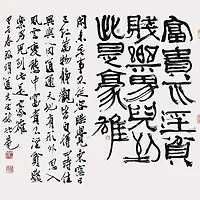 富貴不淫貧
賤樂男兒到
此是豪雄
閒來無事不從容睡覺東窗日
已紅萬物靜觀皆自得四時佳
興與人同道通天地有形外思入
風雲變態中富貴不淫貧賤
樂男兒到此是豪雄
甲午春
明道先生